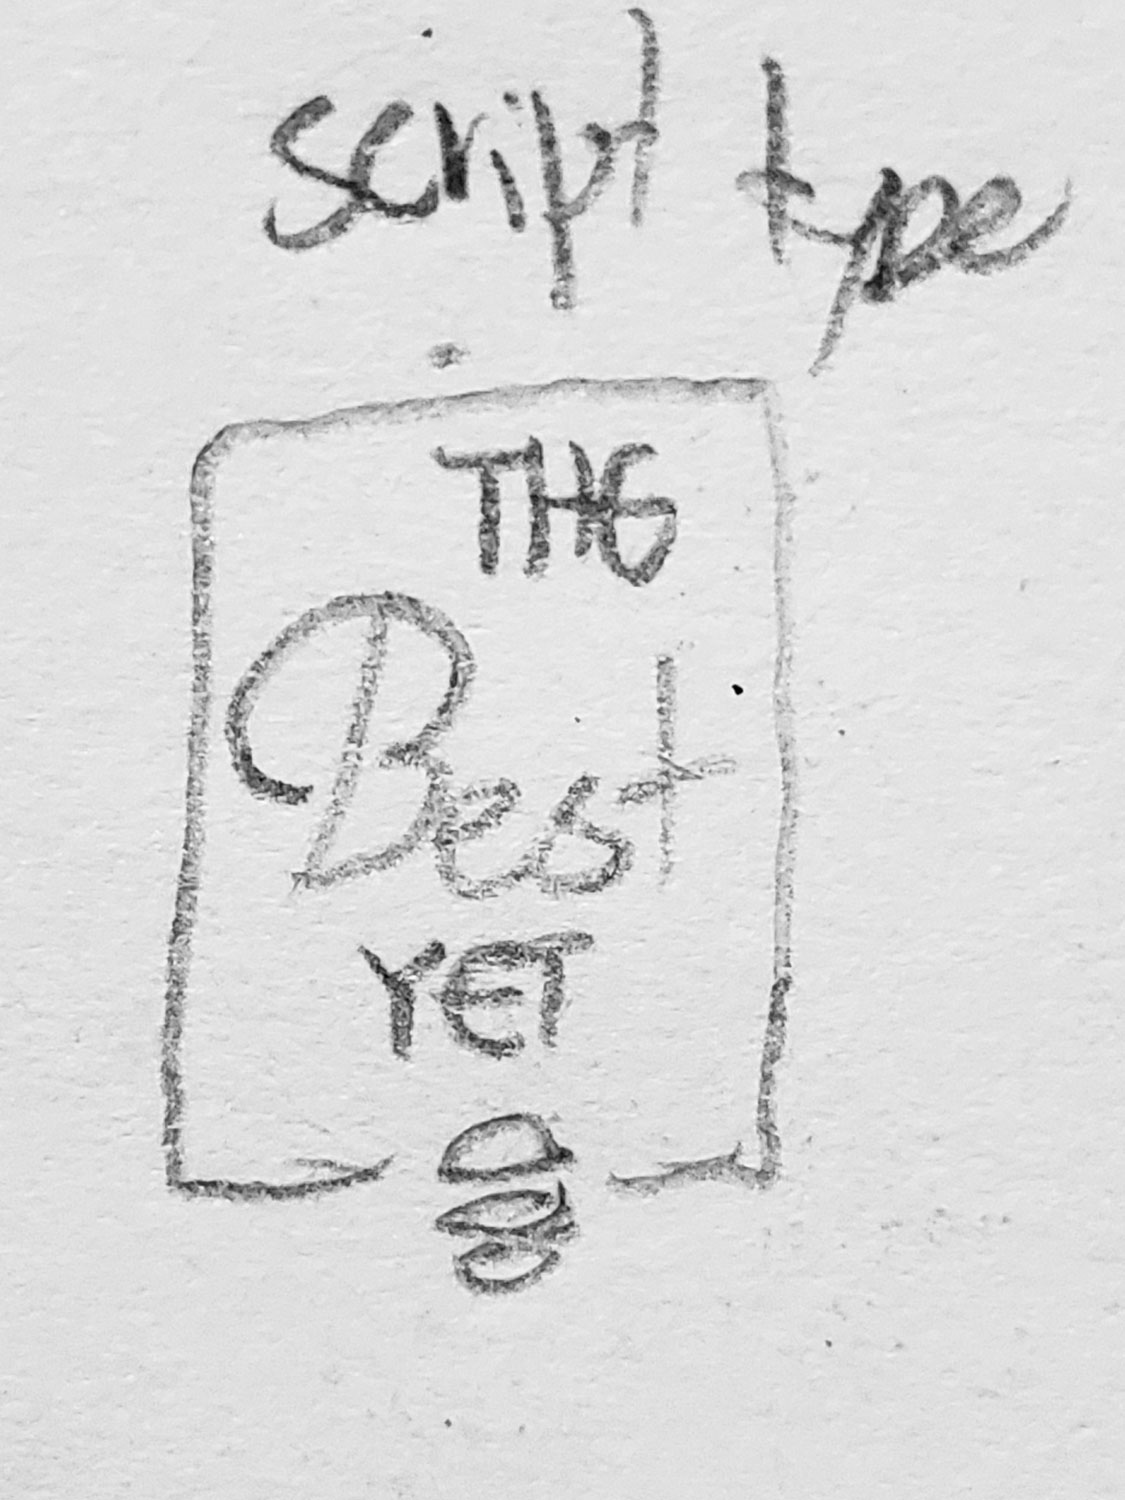 script type
THE
Best
YET